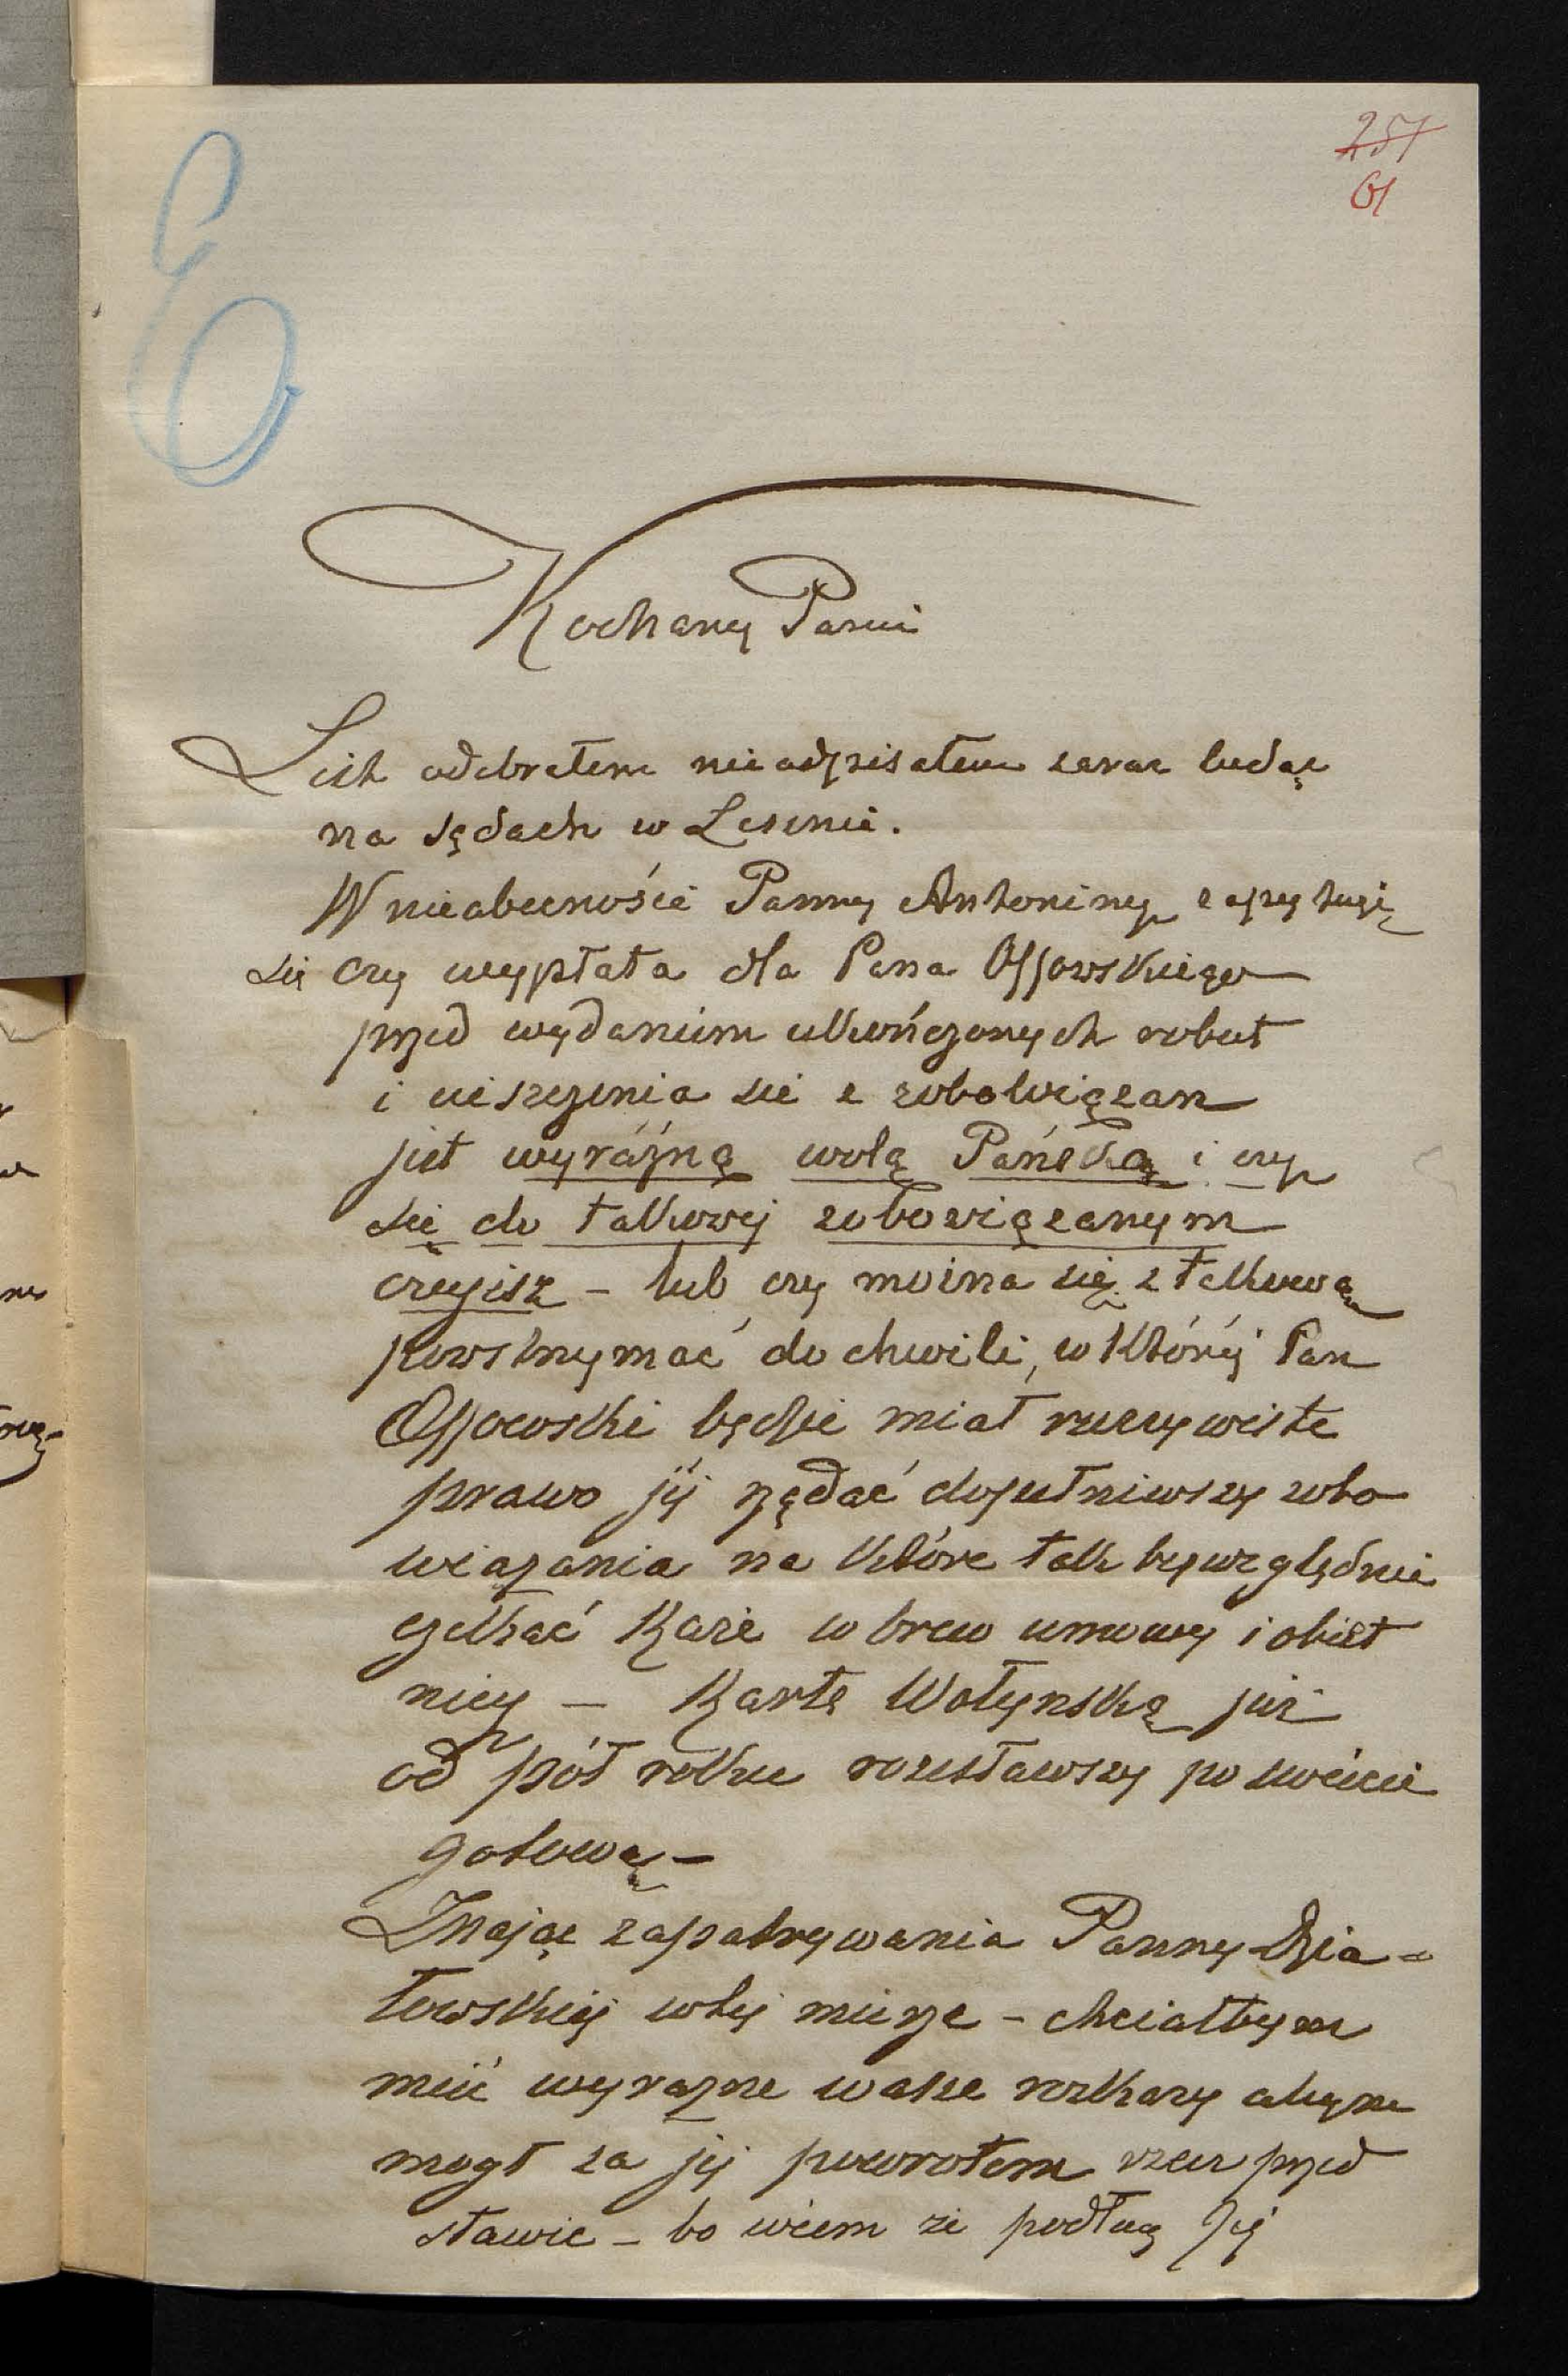 257
61
E
Kochany Panie
List odebrałem nie odpisałem zaraz będąc
na sądach w Lesznie.
W nieobecności Panny Antoniny zapytuję
się czy wypłata dla Pana Ossowskiego
przed wydaniem ukończonych robót
i uiszczenia się z zobowiązan
jest wyráźną wolą Pańską i czy
się do takowej zobowiązanym
czujesz – lub czy można się z takową
powstrzymać do chwili, w któréj Pan
Ossowski będzie miał rzeczywiste
prawo jéj rządać dopełniwszy zobo
wiązania na które tak bezwzględnie
czekać każe w brew umowy i obiet
nicy – Kartę Wołynską już
od pół roku rozesławszy po świecie
gotową –
Znając zapatrywania Panny Dzia=
łowskiéj w téj mierze – chciałbym
mieć wyrazne wasze rozkazy abym
mogł za jéj powrotem rzecz przed
stawic – bo wiem że podług Jéj